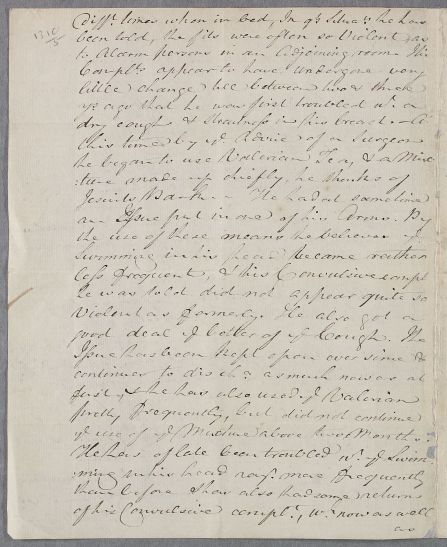 diffᵗ. times when in bed, In qʰ Situaⁿ. he has
been told, the fits were often so violent as
to Alarm persons in an Adjoining room. His
Complᵗˢ. appear to have undergone very
little change till between two & three
yʳˢ ago that he was first troubled wᵗ. a
dry cough & Straitness in his breast. At
this time by yᵉ Advice of a Surgeon
he began to use Valerian Tea, & a Mix-
ture made up chiefly, he thinks of
Jesuits Bark. He had at sametime
an Issue put in one of his Arms. By
the use of these means he believes yᵉ
swimming in his head became rather
less frequent, & his Convulsive complᵗ
he was told did not appear quite so
violent as formerly. He also got a
good deal yᵉ better of yᵉ Cough. The
Issue has been kept open ever since &
continues to dischᵃ. as much now as at
first, & he has also used yᵉ Valerian
pretty frequently, but did not continue
yᵉ use of yᵉ Mixture above two Months.
He has of late been troubled wᵗ. yᵉ Swim-
ming in his head rayʳ. more frequently
than before & has also had some returns
of his Convulsive complᵗ., wᶜ. now as well
as